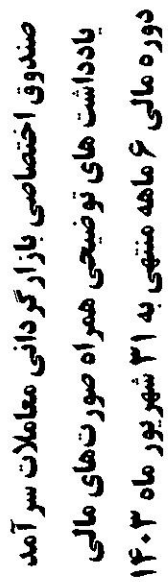 صندوق اختصاصی بازارگردانی معاملات سرآمد
یادداشت های توضیحی همراه صورت‌های مالی
دوره مالی ۶ ماهه منتهی به ۳۱ شهریور ماه ۱۴۰۳